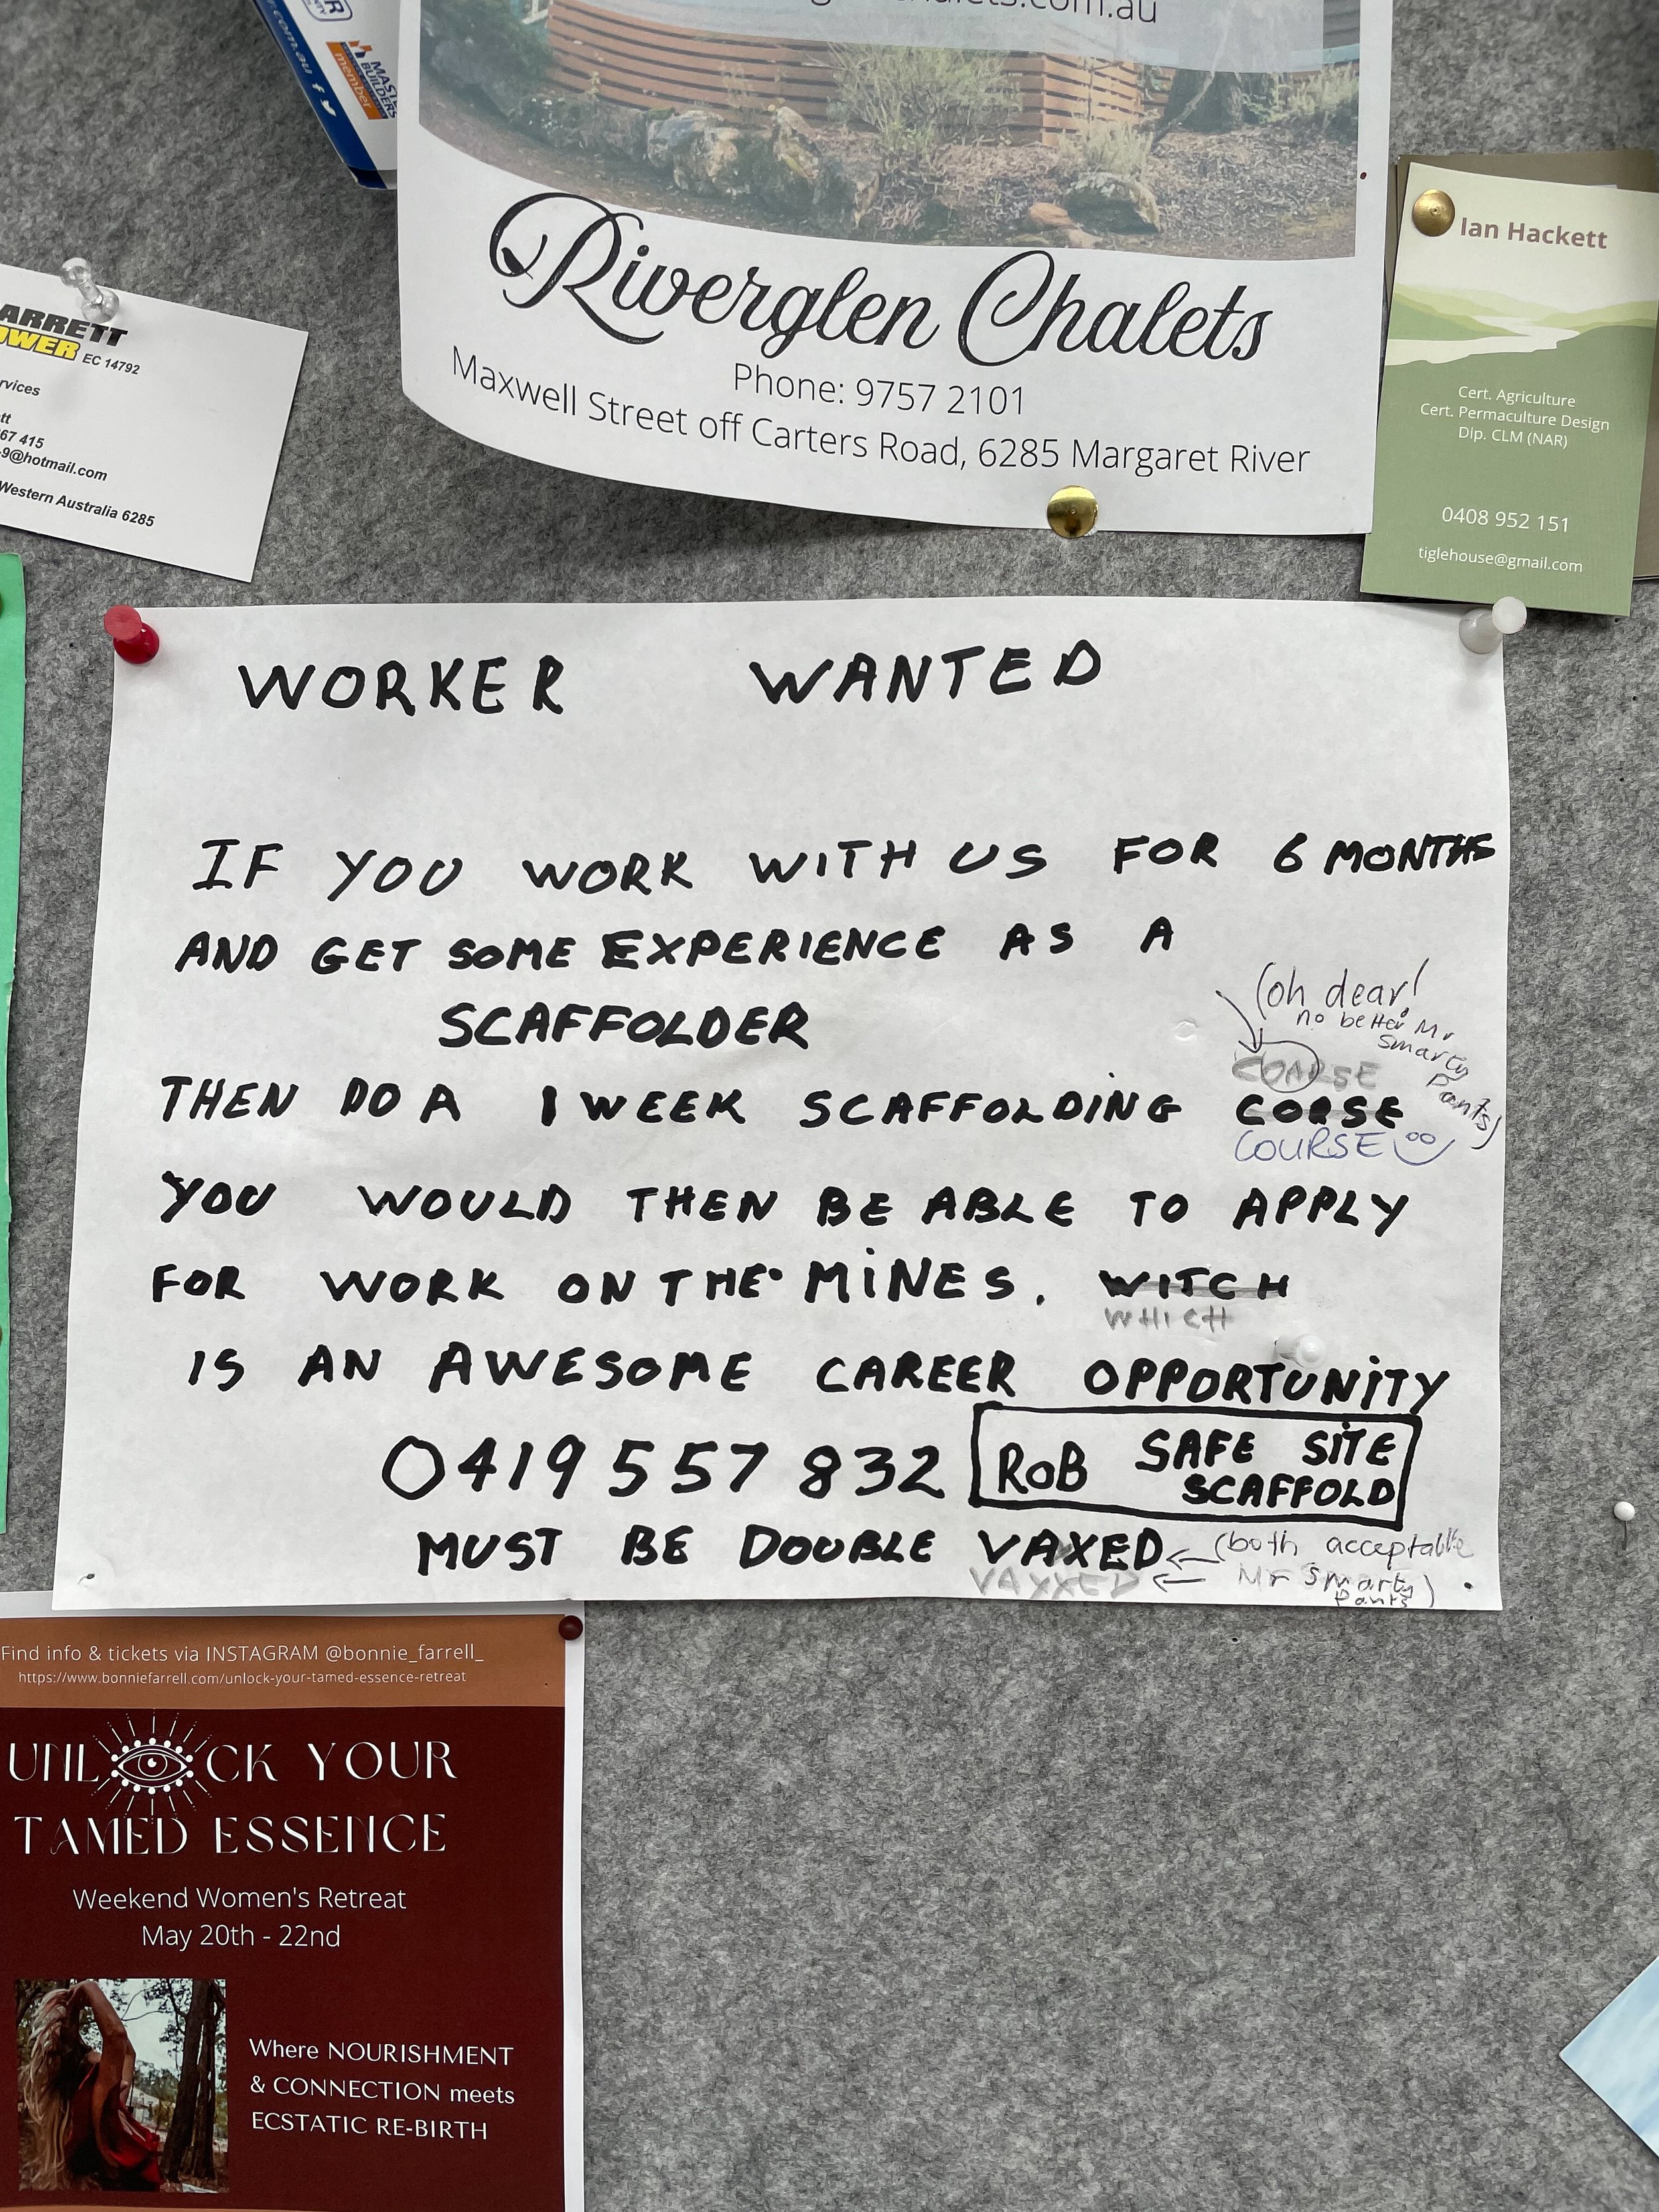 member
.com.au
halets.com.au
Riverglen Chalets
Phone: 9757 2101
Maxwell Street off Carters Road, 6285 Margaret River
Ian Hackett
Cert. Agriculture
Cert. Permaculture Design
Dip. CLM (NAR)
0408 952 151
tiglehouse@gmail.com
ARRETT
OWER EC 14792
rvices
tt
67 415
-9@hotmail.com
Western Australia 6285
WORKER WANTED
IF YOU WORK WITH US FOR 6 MONTHS
AND GET SOME EXPERIENCE AS A
SCAFFOLDER
(oh dear!
no better Mr
smarty
pants)
COARSE
THEN DO A 1 WEEK SCAFFOLDING CORSE
COURSE
YOU WOULD THEN BE ABLE TO APPLY
FOR WORK ON THE MINES. WITCH
WHICH
IS AN AWESOME CAREER OPPORTUNITY
0419 557 832 ROB SAFE SITE
SCAFFOLD
MUST BE DOUBLE VAXED (both acceptable
VAXXED Mr Smarty
Pants)
Find info & tickets via INSTAGRAM @bonnie_farrell_
https://www.bonniefarrell.com/unlock-your-tamed-essence-retreat
UNLOCK YOUR
TAMED ESSENCE
Weekend Women's Retreat
May 20th - 22nd
Where NOURISHMENT
& CONNECTION meets
ECSTATIC RE-BIRTH